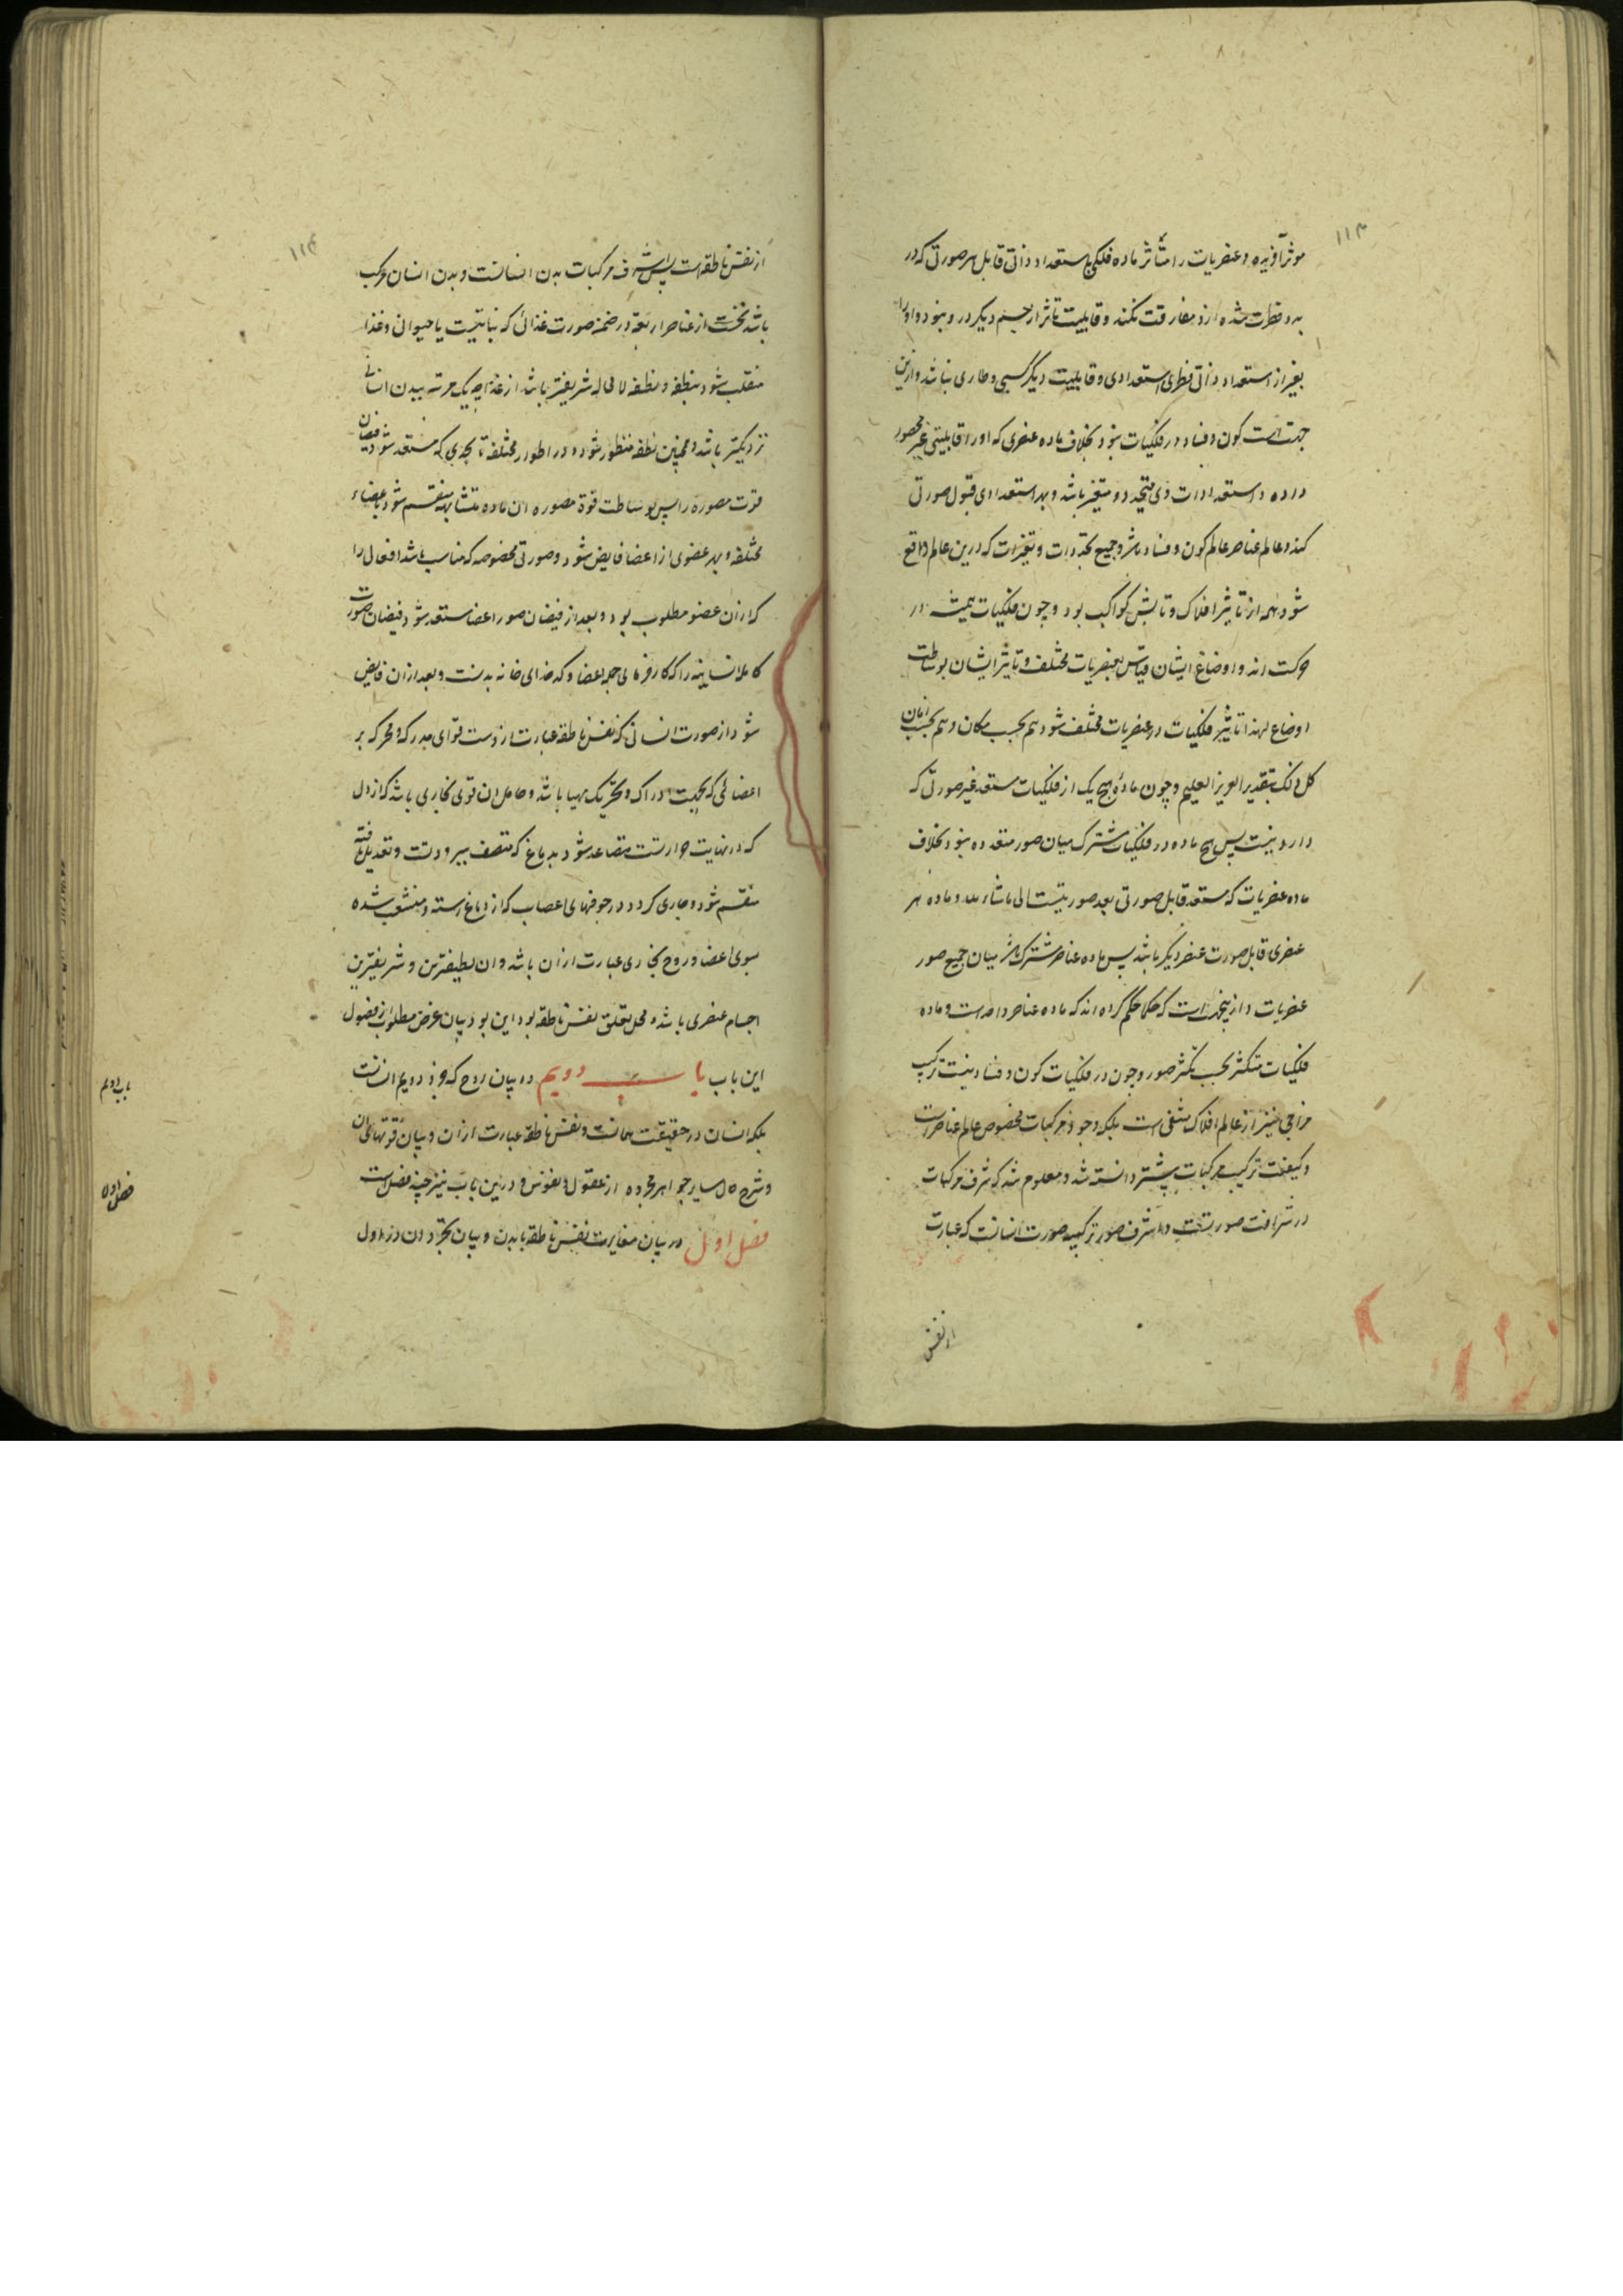 ۱۱۳
موثر آفریده و عنصریات را متأثر ماده فلکی باستعداد ذاتی قابل هر صورتی که در
بدو فطرت شده ازو مفارقت نکند و قابلیت تاثر از جسم دیگر درو نبود و او را
بغیر از استعداد ذاتی فطری استعدادی و قابلیت دیگر کسبی و طاری نباشد و ازین
جهت است کون و فساد در فلکیات نبود بخلاف ماده عنصری که او را قابلیتی غیر محصور
داده و استعدادات وی متجدد و متغیر باشد و بهر استعدادی قبول صورتی
کند و عالم عناصر عالم کون و فساد باشد و جمیع تجددات و تغیرات که درین عالم واقع
شود همه از تاثیر افلاک و تابش کواکب بود و چون فلکیات همیشه در
حرکت اند و اوضاع ایشان قیاس بعنصریات مختلف و تاثیر ایشان بوساطت
اوضاع لهذا تاثیر فلکیات در عنصریات مختلف شود هم بحسب مکان و هم بحسب زمان
کل ذلک بتقدیر العزیز العلیم و چون مادهٔ هیچ یک از فلکیات مستعد غیر صورتی که
دارد نیست پس هیچ ماده در فلکیات مشترک میان صور متعدده نبود بخلاف
ماده عنصریات که مستعد قابل صورتی بعد صورتیست الی ماشاء الله و ماده هر
عنصری قابل صورت عنصر دیگر باشد پس ماده عناصر مشترک باشد میان جمیع صور
عنصریات و ازینجهت است که حکما حکم کرده اند که ماده عناصر واحد است و ماده
فلکیات متکثر بحسب تکثر صور و چون در فلکیات کون و فساد نیست ترکیب
مزاجی نیز از عالم افلاک منتفی است بلکه وجود مرکبات مخصوص عالم عناصر است
و کیفیت ترکیب مرکبات پیشتر دانسته شد و معلوم شد که شرف مرکبات
در شرافت صورتست و اشرف صور ترکیبیه صورت انسانست که عبارت
از نفس
۱۱۴
از نفس ناطقه است پس اشرف مرکبات بدن انسانست و بدن انسان مرکب
باشد نخست از عناصر اربعة در ضمن صورت غذائی که نباتیست یا حیوانی و غذا
منقلب شود بنطفه و نطفه لا محاله شریفتر باشد از غذا چه یک مرتبه ببدن انسانی
نزدیکتر باشد و همچنین نطفه متطور شود در اطوار مختلفه تا بحدی که مستعد شود فیضان
قوت مصوره را پس بوساطت قوة مصوره ان ماده متشابهه منقسم شود باعضاء
مختلفه و بهر عضوی از اعضا فایض شود و صورتی مخصوصه که مناسب باشد افعال را
که ازان عضو مطلوب بود و بعد از فیضان صور اعضا مستعد شود فیضان صورت
کامله انسانیه را که کارفرمای جمله اعضا و کدخدای خانه بدنست و بعد ازان فایض
شود از صورت انسانی که نفس ناطقه عبارت ازوست قوای مدرکه و محرکه بر
اعضائی که بجهت ادراک و تحریک مهیا باشد و حامل ان قوی بخاری باشد که از دل
که در نهایت حرارتست متصاعد شود بدماغ که متصف ببرودتست و تعدیل یافته
منقسم شود و جاری گردد در جوفهای اعصاب که از دماغ رسته و منشعب شده
بسوی اعضا و روح بخاری عبارت ازان باشد و ان لطیفترین و شریفترین
اجسام عنصری باشد و محل تعلق نفس ناطقه بود این بود بیان غرض مطلوب از فصول
این باب باب دویم در بیان روح که جزو دویم انسانست
بلکه انسان در حقیقت همانست و نفس ناطقه عبارت ازان و بیان قوتهای ان
و شرح حال سایر جواهر مجرده از عقول و نفوس و درین باب نیز چند فصل است
فصل اول در بیان مغایرت نفس ناطقه با بدن و بیان تجرد ان در اول
باب دویم
فصل اول